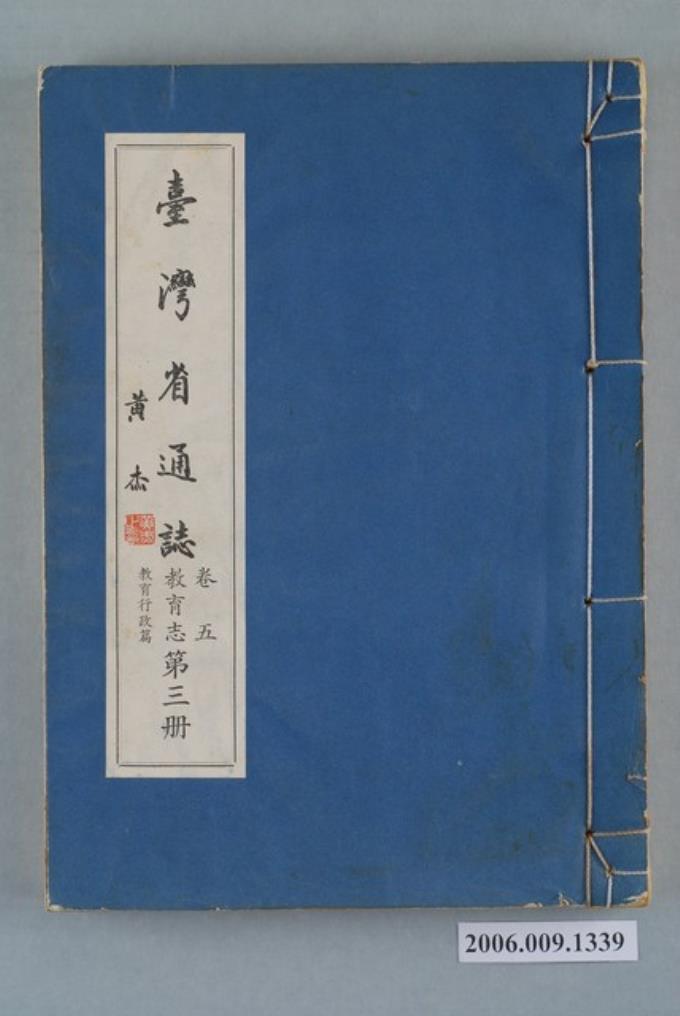 臺灣省通誌
卷五
教育志第三册
教育行政篇
黄杰
2006.009.1339